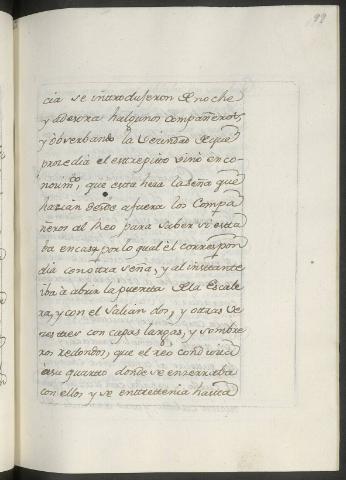 99
cia se introduseron de noche
y à desora halgunos compañeros,
y obserbando la Vecindad de què
prosedia el estrepito vino en co-
nosim.to, que esta hera la seña què
hazian desde afuera los Compa-
ñeros al Reo para saber si esta-
ba en casa por lo qual èl correspon-
dia con otra seña, y al instante
iba à abrir la puerta de la Escale-
ra, y con el salian dos, y otras ve-
ses tres con capas largas, y sombre-
ros redondos, que el reo conducia
à su quarto donde se enserraba
con ellos y se entretenia hasta